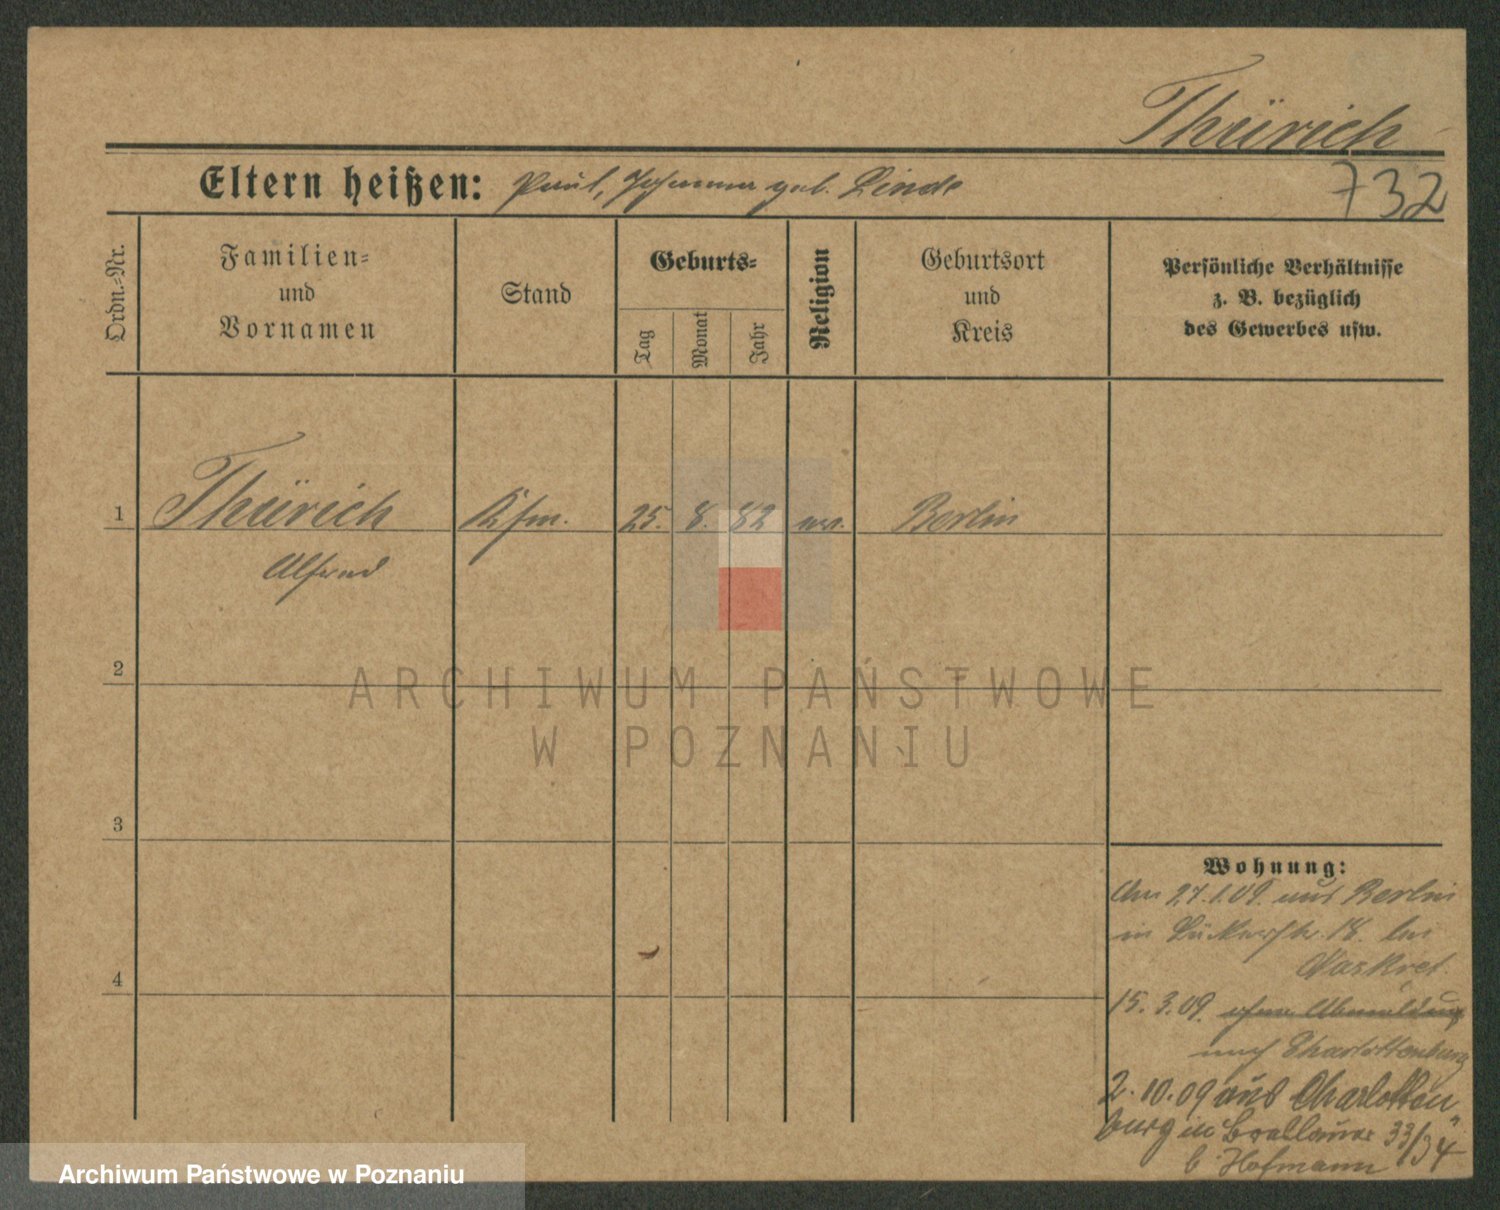 Thürich
Eltern heißen: Paul, Johanna geb. Linde
732
Ordn.-Nr.
Familien-
und
Vornamen
Stand
Geburts-
Tag
Monat
Jahr
Religion
Geburtsort
und
Kreis
Persönliche Verhältnisse
z. B. bezüglich
des Gewerbes usw.
1 Thürich Kfm. 25. 8. 82 ev. Berlin
Alfred
2
3
4
ARCHIWUM PAŃSTWOWE
W POZNANIU
Wohnung:
Am 27.1.09. aus Berlin
in 18. bei
15. 3. 09. ohne Abmeldung
nach Charlottenburg
2. 10. 09 aus Charlotten
burg in Breslauer 33/34
b Hofmann
Archiwum Państwowe w Poznaniu